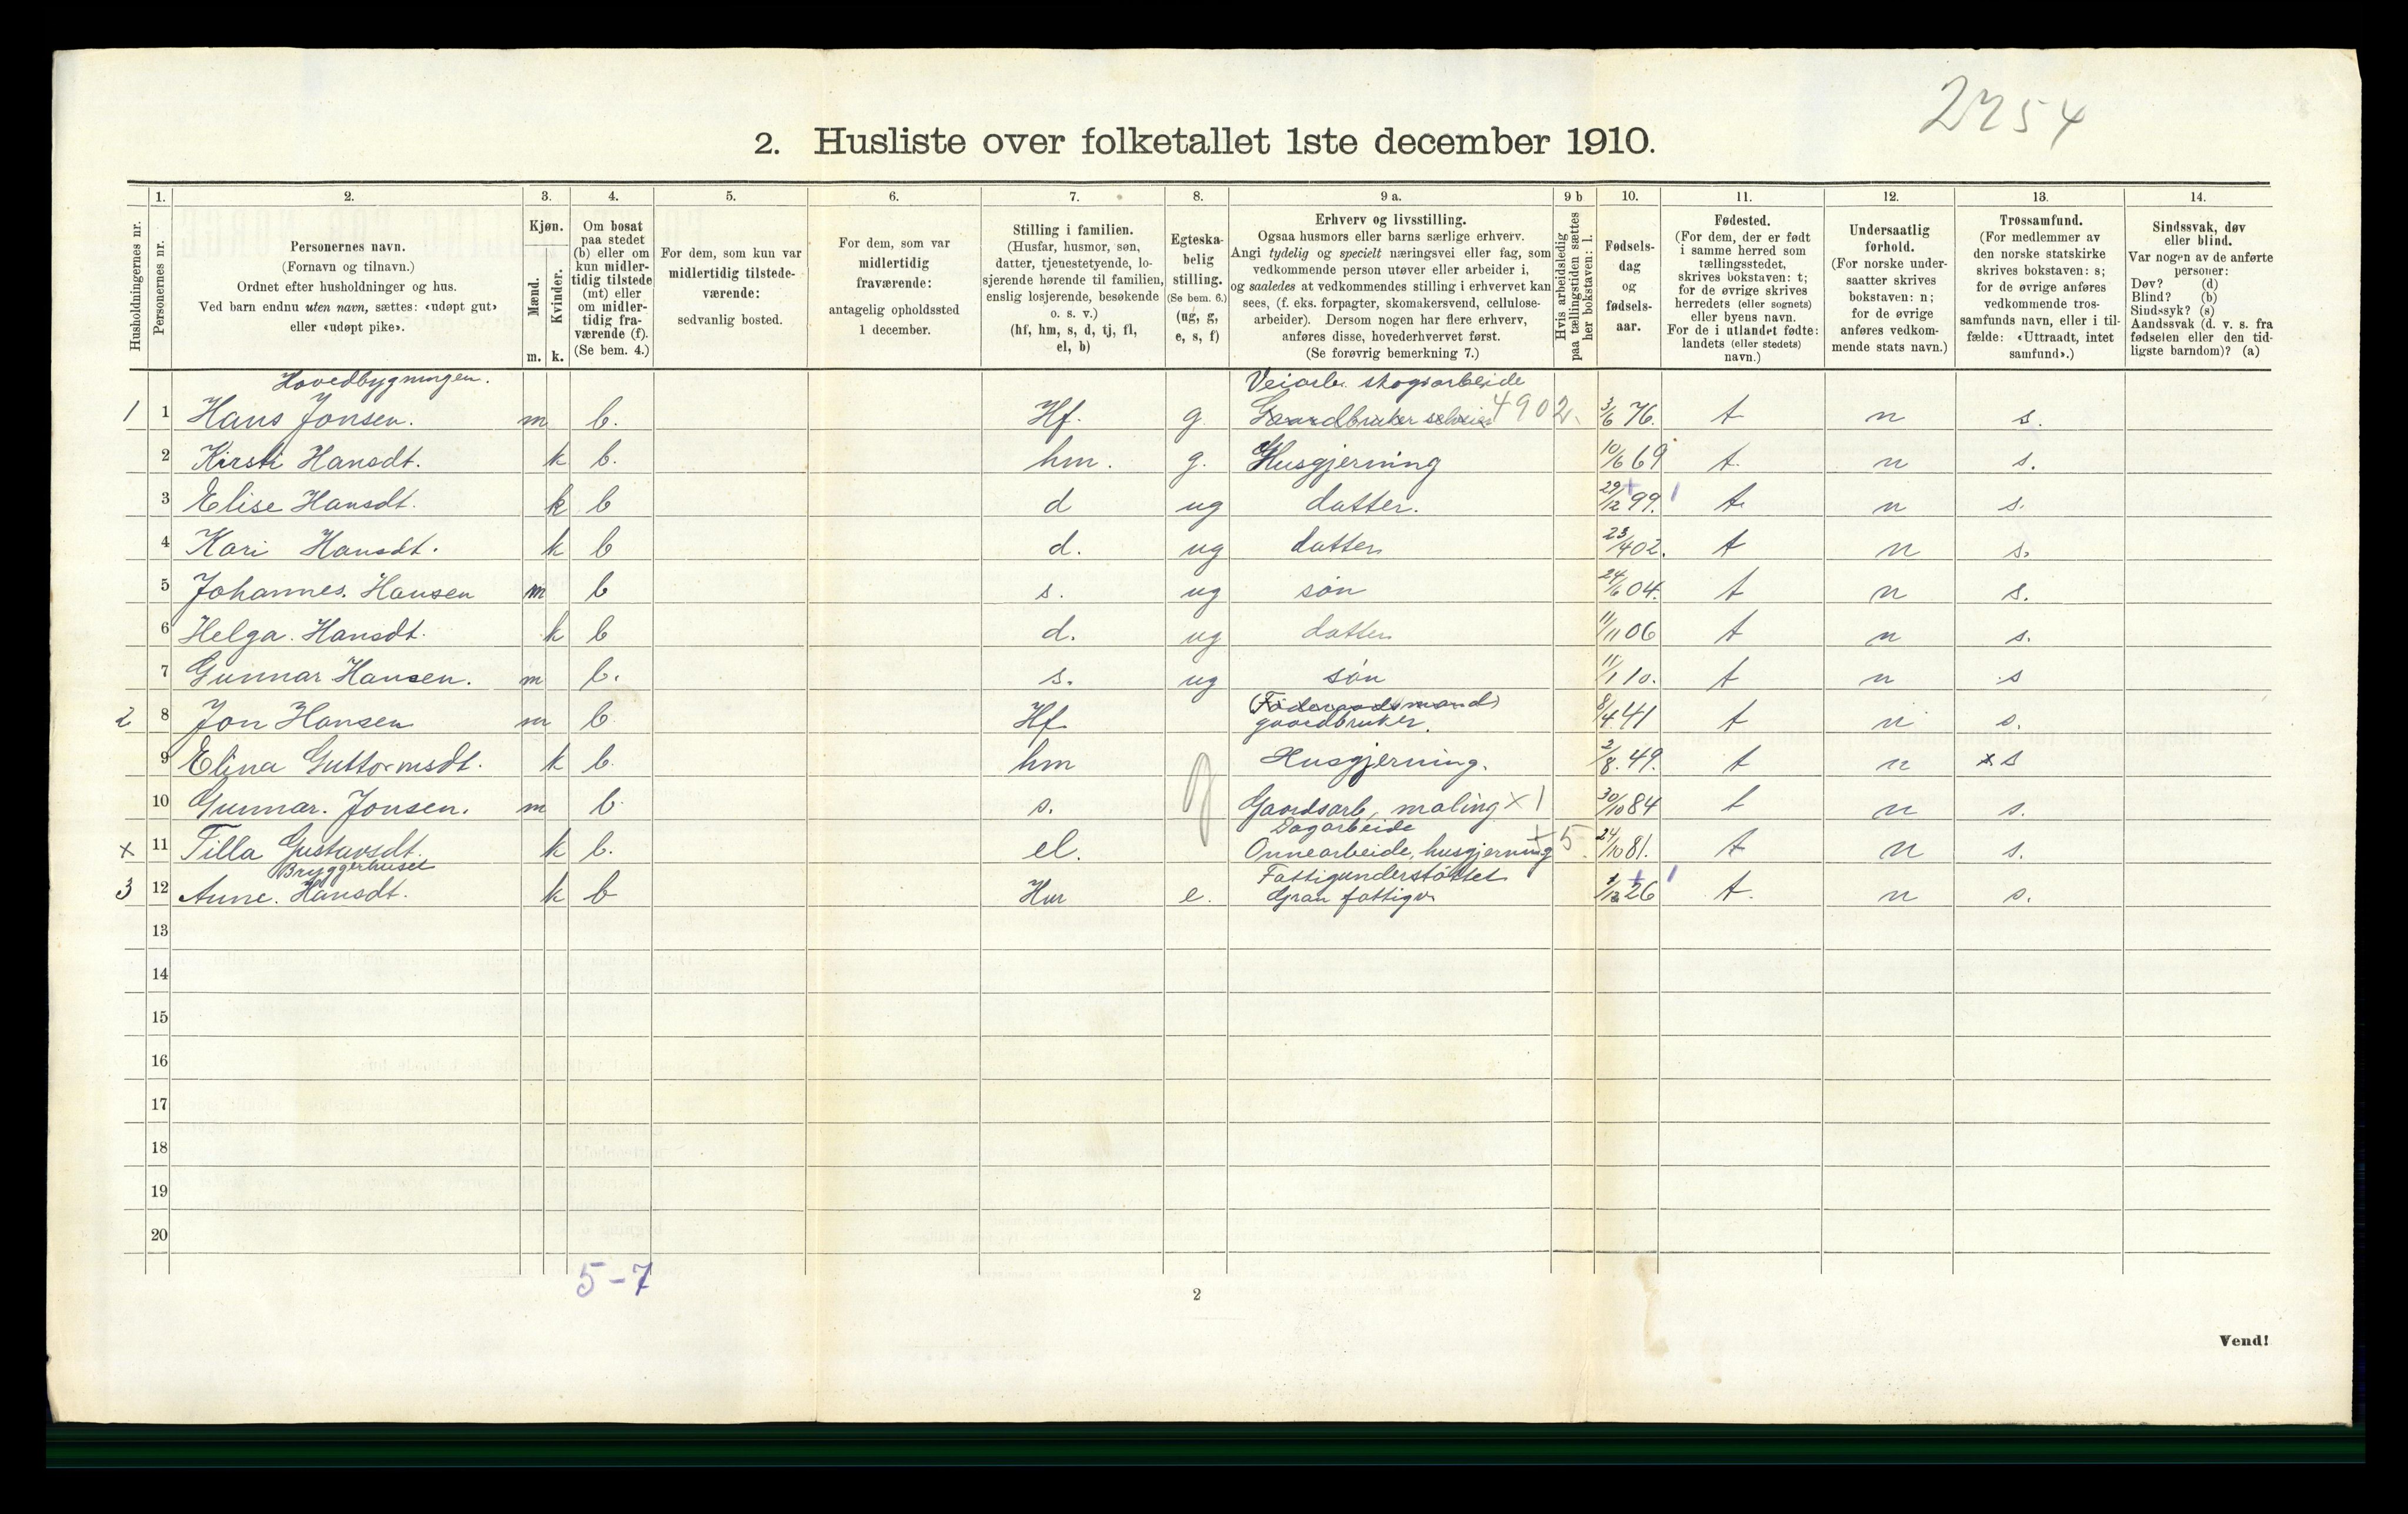 2754
2. Husliste over folketallet 1ste december 1910.
Husholdningernes nr.
1. Personernes nr.
2. Personernes navn.
(Fornavn og tilnavn.)
Ordnet efter husholdninger og hus.
Ved barn endnu uten navn, sættes: «udøpt gut»
eller «udøpt pike».
3. Kjøn.
Mænd. Kvinder.
m. k.
4. Om bosat
paa stedet
(b) eller om
kun midler-
tidig tilstede
(mt) eller
om midler-
tidig fra-
værende (f).
(Se bem. 4.)
5. For dem, som kun var
midlertidig tilstede-
værende:
sedvanlig bosted.
6. For dem, som var
midlertidig
fraværende:
antagelig opholdssted
1 december.
7. Stilling i familien.
(Husfar, husmor, søn,
datter, tjenestetyende, lo-
sjerende hørende til familien,
enslig losjerende, besøkende
o. s. v.)
(hf, hm, s, d, tj, fl,
el, b)
8. Egteska-
belig
stilling.
(Se bem. 6.)
(ug, g,
e, s, f)
9 a. Erhverv og livsstilling.
Ogsaa husmors eller barns særlige erhverv.
Angi tydelig og specielt næringsvei eller fag, som
vedkommende person utøver eller arbeider i,
og saaledes at vedkommendes stilling i erhvervet kan
sees, (f. eks. forpagter, skomakersvend, cellulose-
arbeider). Dersom nogen har flere erhverv,
anføres disse, hovederhvervet først.
(Se forøvrig bemerkning 7.)
9 b Hvis arbeidsledig
paa tællingstiden sættes
her bokstaven: l.
10. Fødsels-
dag
og
fødsels-
aar.
11. Fødested.
(For dem, der er født
i samme herred som
tællingsstedet,
skrives bokstaven: t;
for de øvrige skrives
herredets (eller sognets)
eller byens navn.
For de i utlandet fødte:
landets (eller stedets)
navn.)
12. Undersaatlig
forhold.
(For norske under-
saatter skrives
bokstaven: n;
for de øvrige
anføres vedkom-
mende stats navn.)
13. Trossamfund.
(For medlemmer av
den norske statskirke
skrives bokstaven: s;
for de øvrige anføres
vedkommende tros-
samfunds navn, eller i til-
fælde: «Uttraadt, intet
samfund».)
14. Sindssvak, døv
eller blind.
Var nogen av de anførte
personer:
Døv? (d)
Blind? (b)
Sindssyk? (s)
Aandssvak (d. v. s. fra
fødselen eller den tid-
ligste barndom)? (a)
Hovedbygningen. Veiarb. skogsarbeide
1 1 Hans Jonsen. m b. Hf. g. Gaardbruker selveier 4902. 3/6 76. t n s.
2 Kirsti Hansdt. k b. hm. g. Husgjerning 10/6 69 t. n s.
3 Elise Hansdt. k b d ug datter. 29/12 99. t. n s.
4 Kari Hansdt. k b d. ug datter 23/4 02. t n s.
5 Johannes. Hansen m b s. ug søn 24/6 04. t n s.
6 Helga. Hansdt. k b d. ug datter 11/11 06 t n s.
7 Gunnar Hansen. m b. s. ug søn 11/1 10. t n s
(Føderaadsmand)
2 8 Jon Hansen m b Hf g gaardbruker. 8/4 41 t n s.
9 Elina Guttormsdt. k b. hm Husgjerning. 2/8. 49. t n x s
10 Gunnar. Jonsen. m b. s. Gaardsarb, maling x 1 30/10 84 t n s.
Dagarbeide
x 11 Tilla Gustavsdt. k b. el. Onnearbeide, husgjerning + 5 24/10 81. t n s.
Bryggerhuset Fattigunderstøttet
3 12 Anne. Hansdt. k b Hm e. Gran fattigv 1/12 26 t. n s.
13
14
15
16
17
18
19
20
5-7
2
Vend!